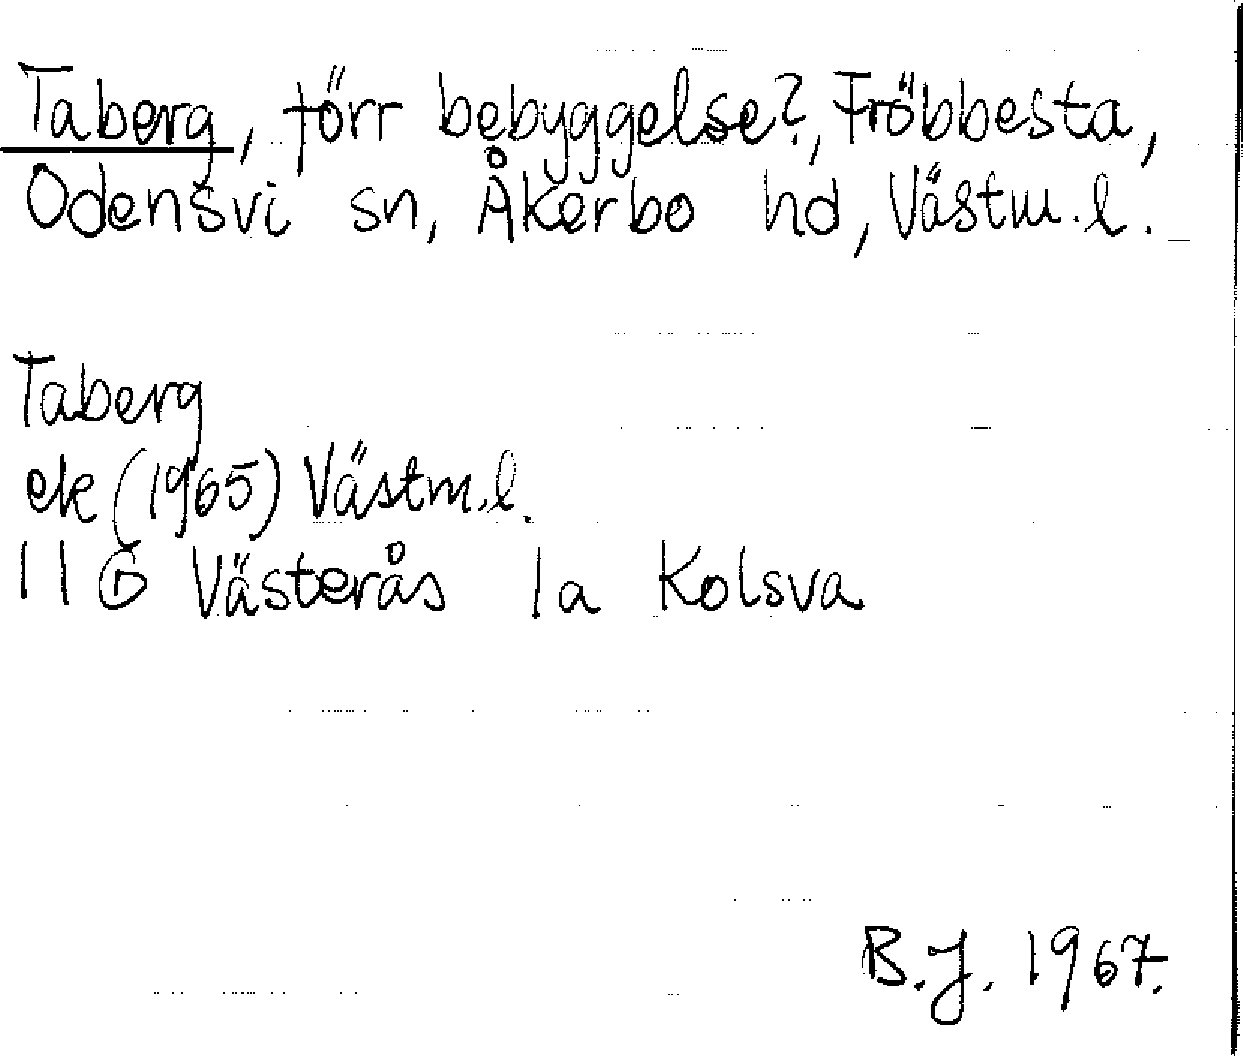 Taberg, förr bebyggelse?, Fröbbesta,
Odensvi sn, Åkerbo hd, Västm.l.
Taberg
ek (1965) Västm.l.
11 G Västerås 1a Kolsva
B.J. 1967.